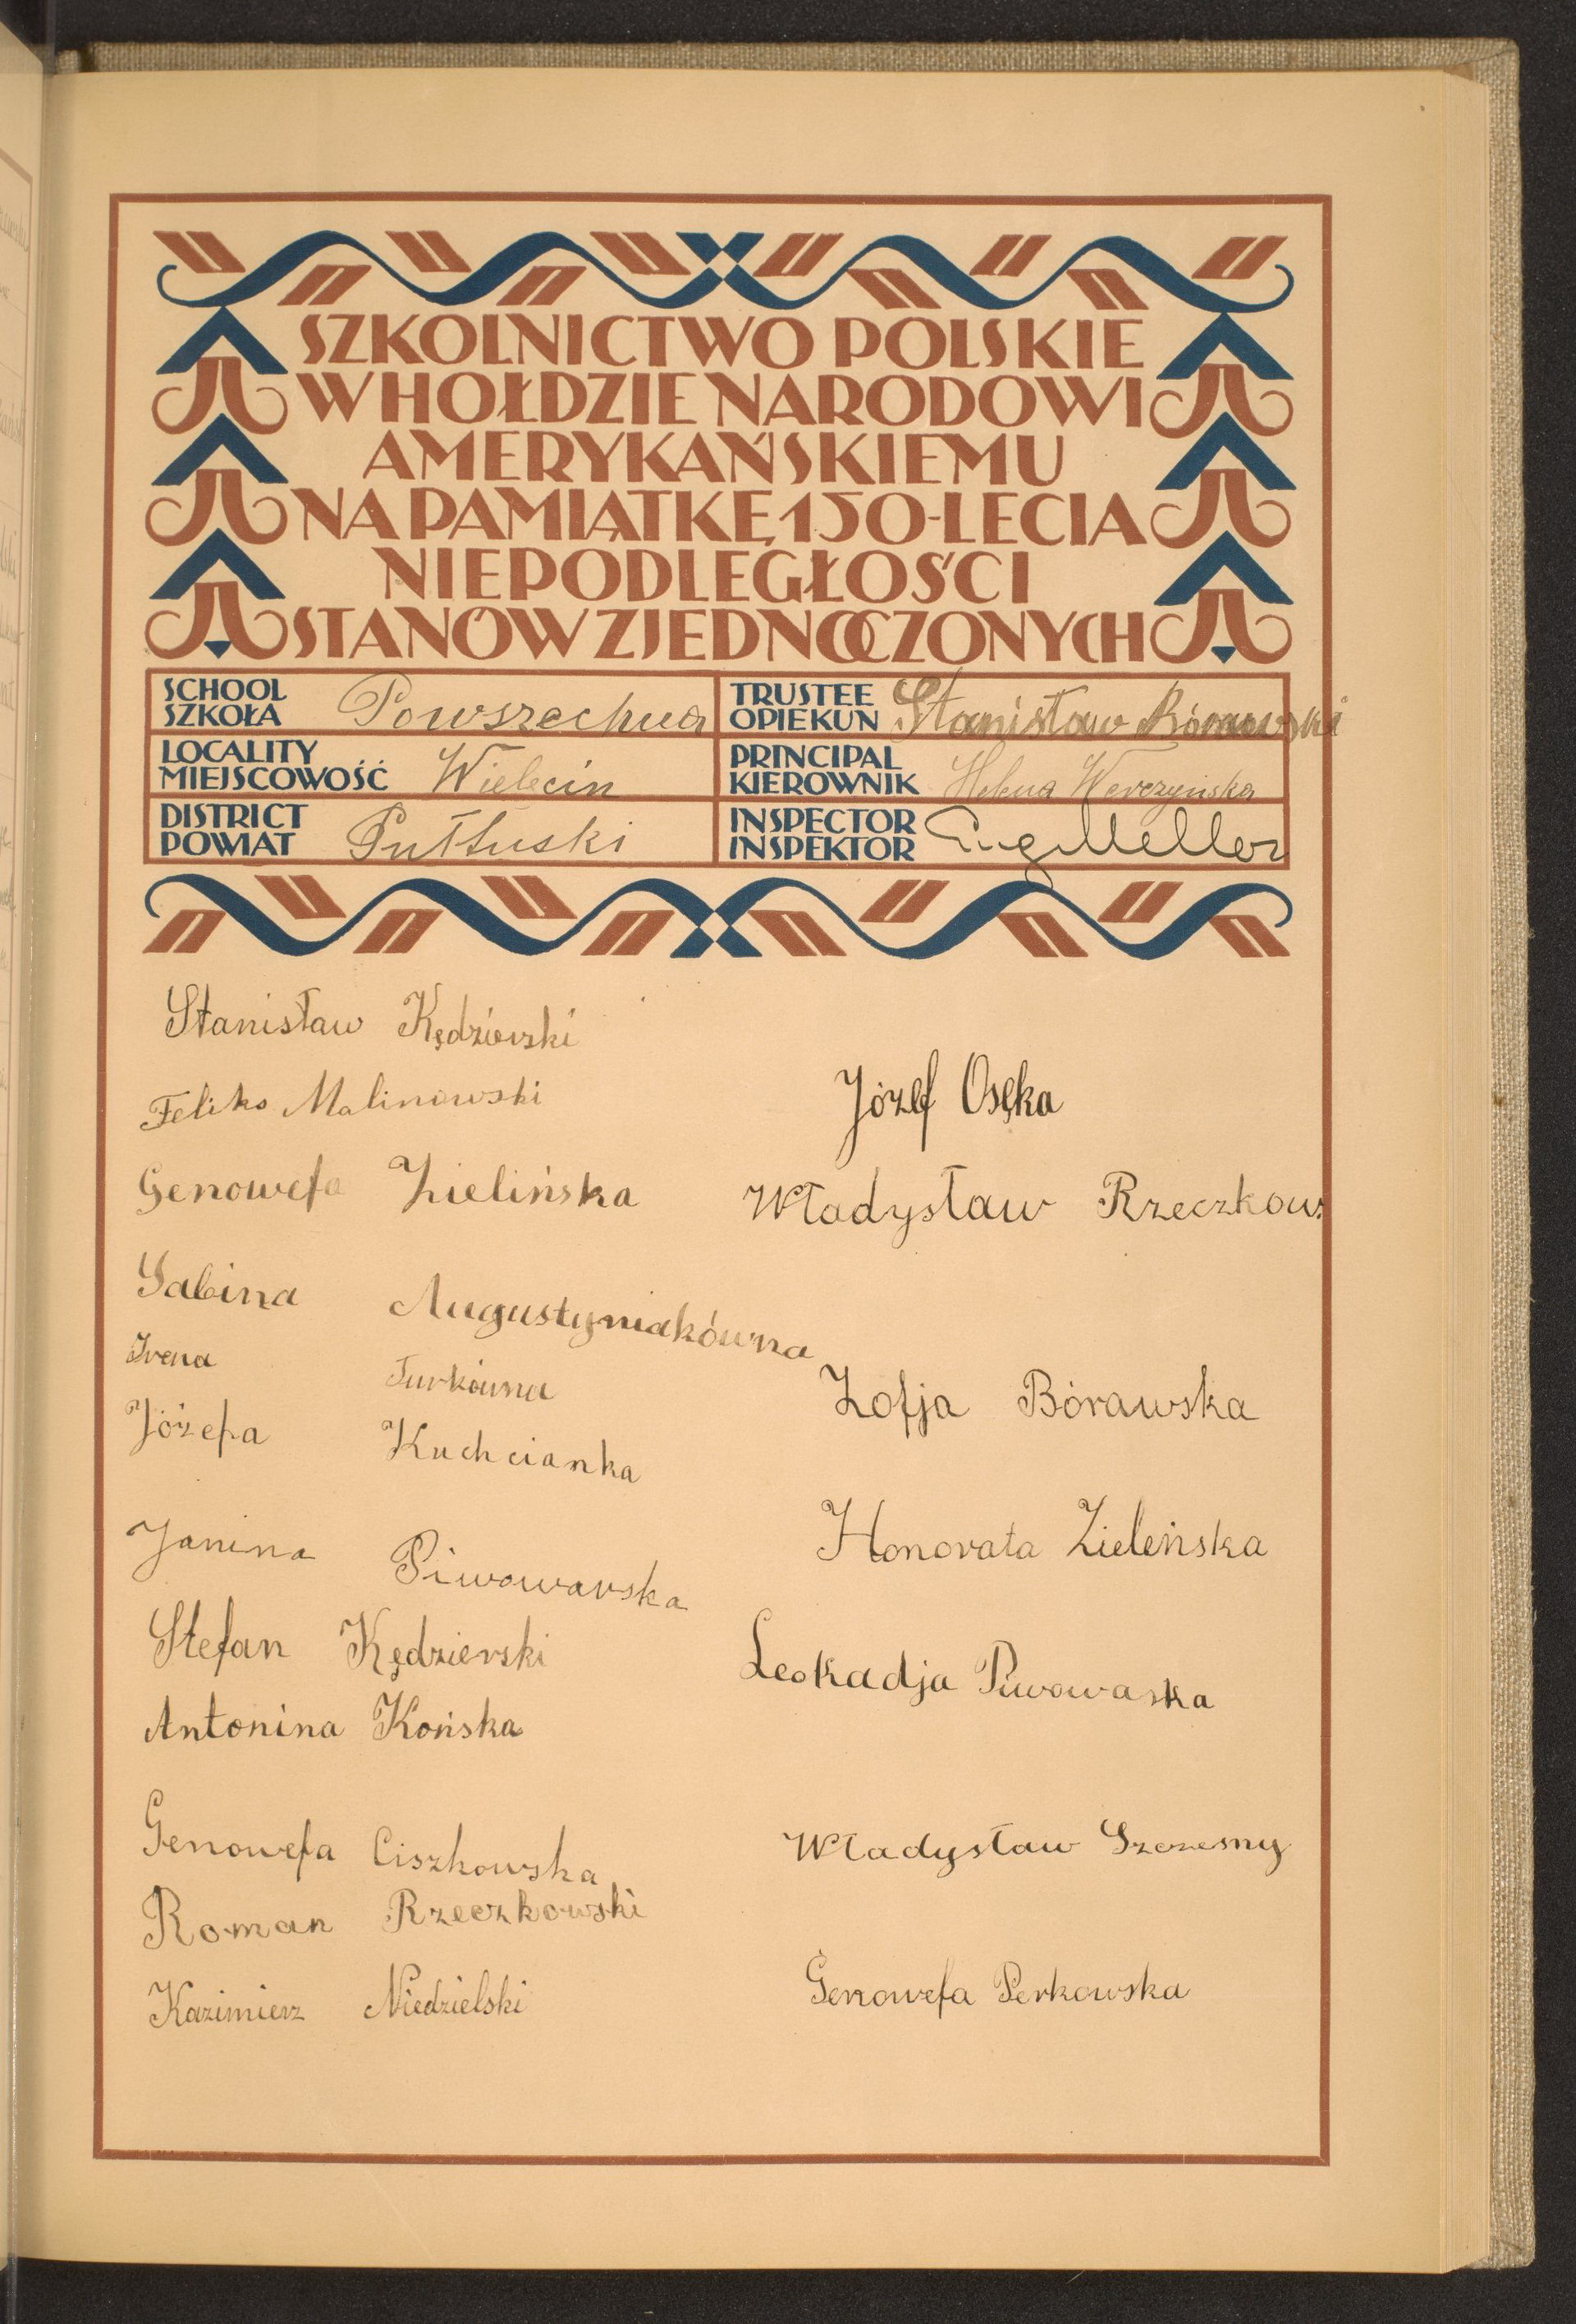 SZKOLNICTWO POLSKIE
W HOŁDZIE NARODOWI
AMERYKAŃSKIEMU
NA PAMIĄTKĘ 150-LECIA
NIEPODLEGŁOŚCI
STANÓW ZJEDNOCZONYCH
SCHOOL
SZKOŁA Powszechna
TRUSTEE
OPIEKUN Stanisław Bórawski
LOCALITY
MIEJSCOWOŚĆ Wielęcin
PRINCIPAL
KIEROWNIK Helena Werczyńska
DISTRICT
POWIAT Pułtuski
INSPECTOR
INSPEKTOR Eug Meller
Stanisław Kędzierski
Feliks Malinowski
Genowefa Zielińska
Sabina Augustyniakówna
Irena Turkówna
Józefa Kuchcianka
Janina Piwowarska
Stefan Kędzierski
Antonina Końska
Genowefa Ciszkowska
Roman Rzeczkowski
Kazimierz Niedzielski
Józef Osęka
Władysław Rzeczkows
Zofja Bórawska
Honorata Zieleńska
Leokadja Piwowaska
Władysław Szczesny
Genowefa Perkowska